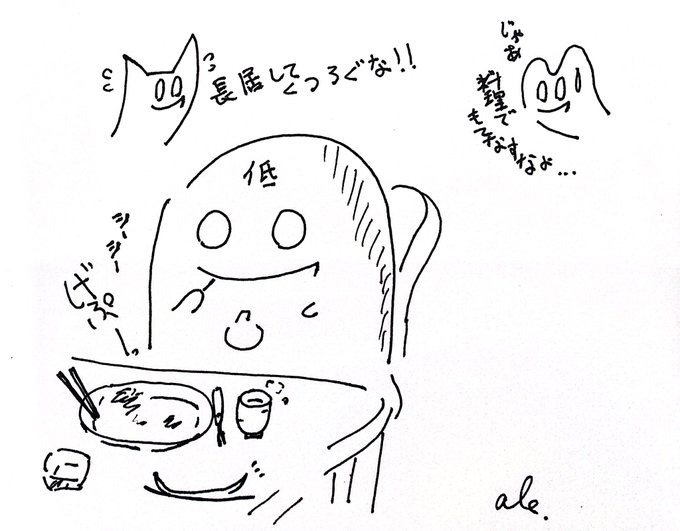 長居して
くつろぐな!!
じゃあ
料理で
もてなすなよ…
低
シーシー
げぷーっ
ale.